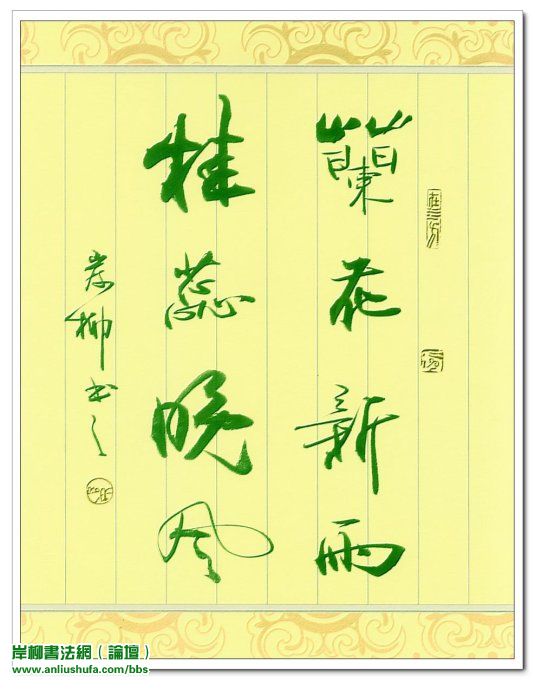 蘭花新雨
桂蕊晚风
岸柳书之
岸柳書法網（論壇）
www.anliushufa.com/bbs